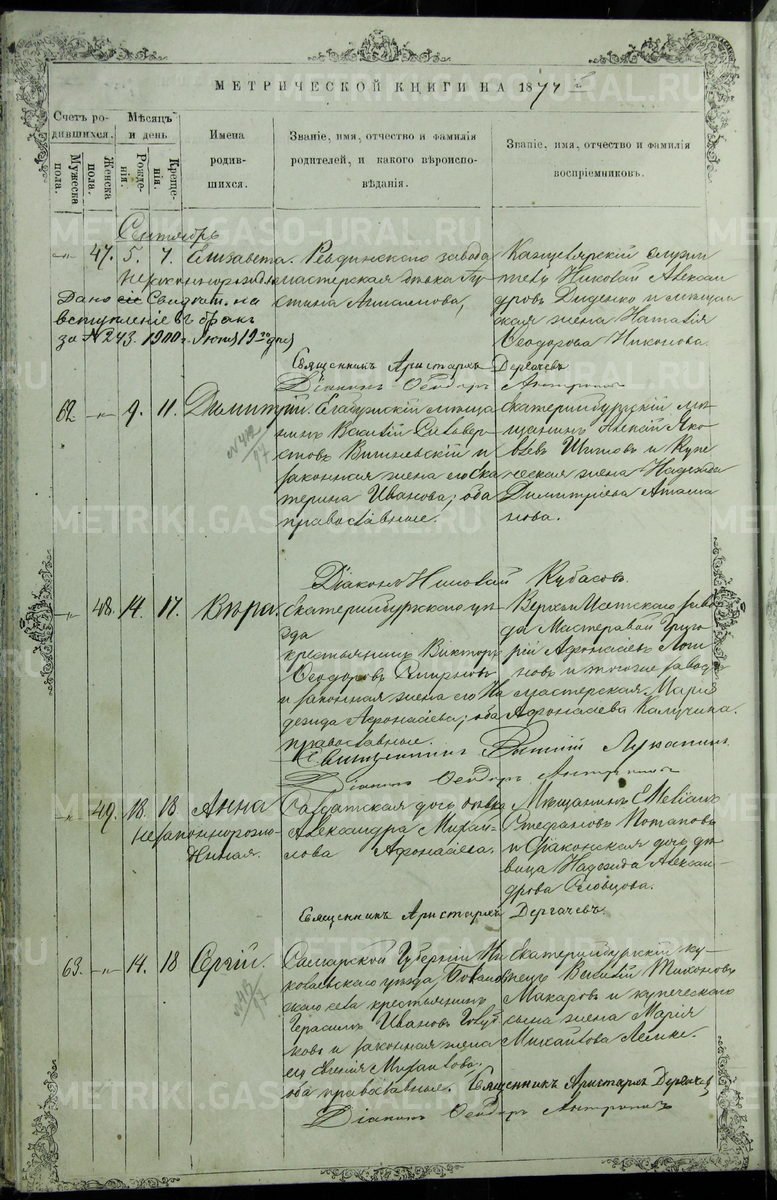 МЕТРИЧЕСКОЙ КНИГИ НА 1877
Счетъ родившихся.
Мужеска пола.
Женска пола.
Мѣсяцъ и день
Рожденія.
Крещенія.
Имена родившихся.
Званіе, имя, отчество и фамилія родителей, и какого вѣроисповѣданія.
Званіе, имя, отчество и фамилія воспріемниковъ.
Сентябрь
47. 5. 7. Елизавета.
незаконнорожд.
Ревдинскаго завода
мастерская
Дано сіе Свидѣт. на
вступленіе въ бракъ
за № 243. 1900 г. Іюня 19 дня
Канцелярскій служи
тель Николай Алексан
дровъ Диденко и мѣщан
ская жена Наталія
Ѳеодорова Никонова.
Священникъ Аристархъ Дергачевъ
Діаконъ Ѳеодоръ
62 9. 11. Димитрій.
Елабужскій мѣща
нинъ Василій Сильвер
стовъ Вишневскій и
законная жена его Ека
терина Иванова; оба
православные.
Екатеринбургскій мѣ
щанинъ Алексѣй Яко
влевъ Шитовъ и купе
ческая жена Надежда
Димитріева
Діаконъ Николай Кубасовъ.
48. 14. 17. Вѣра.
Екатеринбургскаго уѣ
зда
крестьянинъ Викторъ
Ѳеодоровъ Смирновъ
и законная жена его На
дежда Афонасіева; оба
православные.
Верхъ Исетскаго заво
да Мастеровой Григо
рій Афонасіевъ
и тогоже завода
мастерская Марія
Афонасіева
Священникъ
Діаконъ Ѳеодоръ
49. 18. 18 Анна
незаконнорож-
денная.
Солдатская дочь дѣвка
Александра Михай
лова Афонасіева.
Мѣщанинъ Емеліанъ
Стефановъ Потаповъ
и діаконская дочь дѣ
вица Надежда Алексан
дрова Словцова.
Священникъ Аристархъ Дергачевъ.
63. 14. 18 Сергій.
Самарской Губерніи Ни
колаевскаго уѣзда
скаго села крестьянинъ
Герасимъ Ивановъ
и законная жена
его Евгенія Михайлова.
оба православные.
Екатеринбургскій ку
пецъ Василій Тихоновъ
Макаровъ и купеческаго
сына жена Марія
Михайлова
Священникъ Аристархъ Дергачевъ
Діаконъ Ѳеодоръ
METRIKI.GASO-URAL.RU